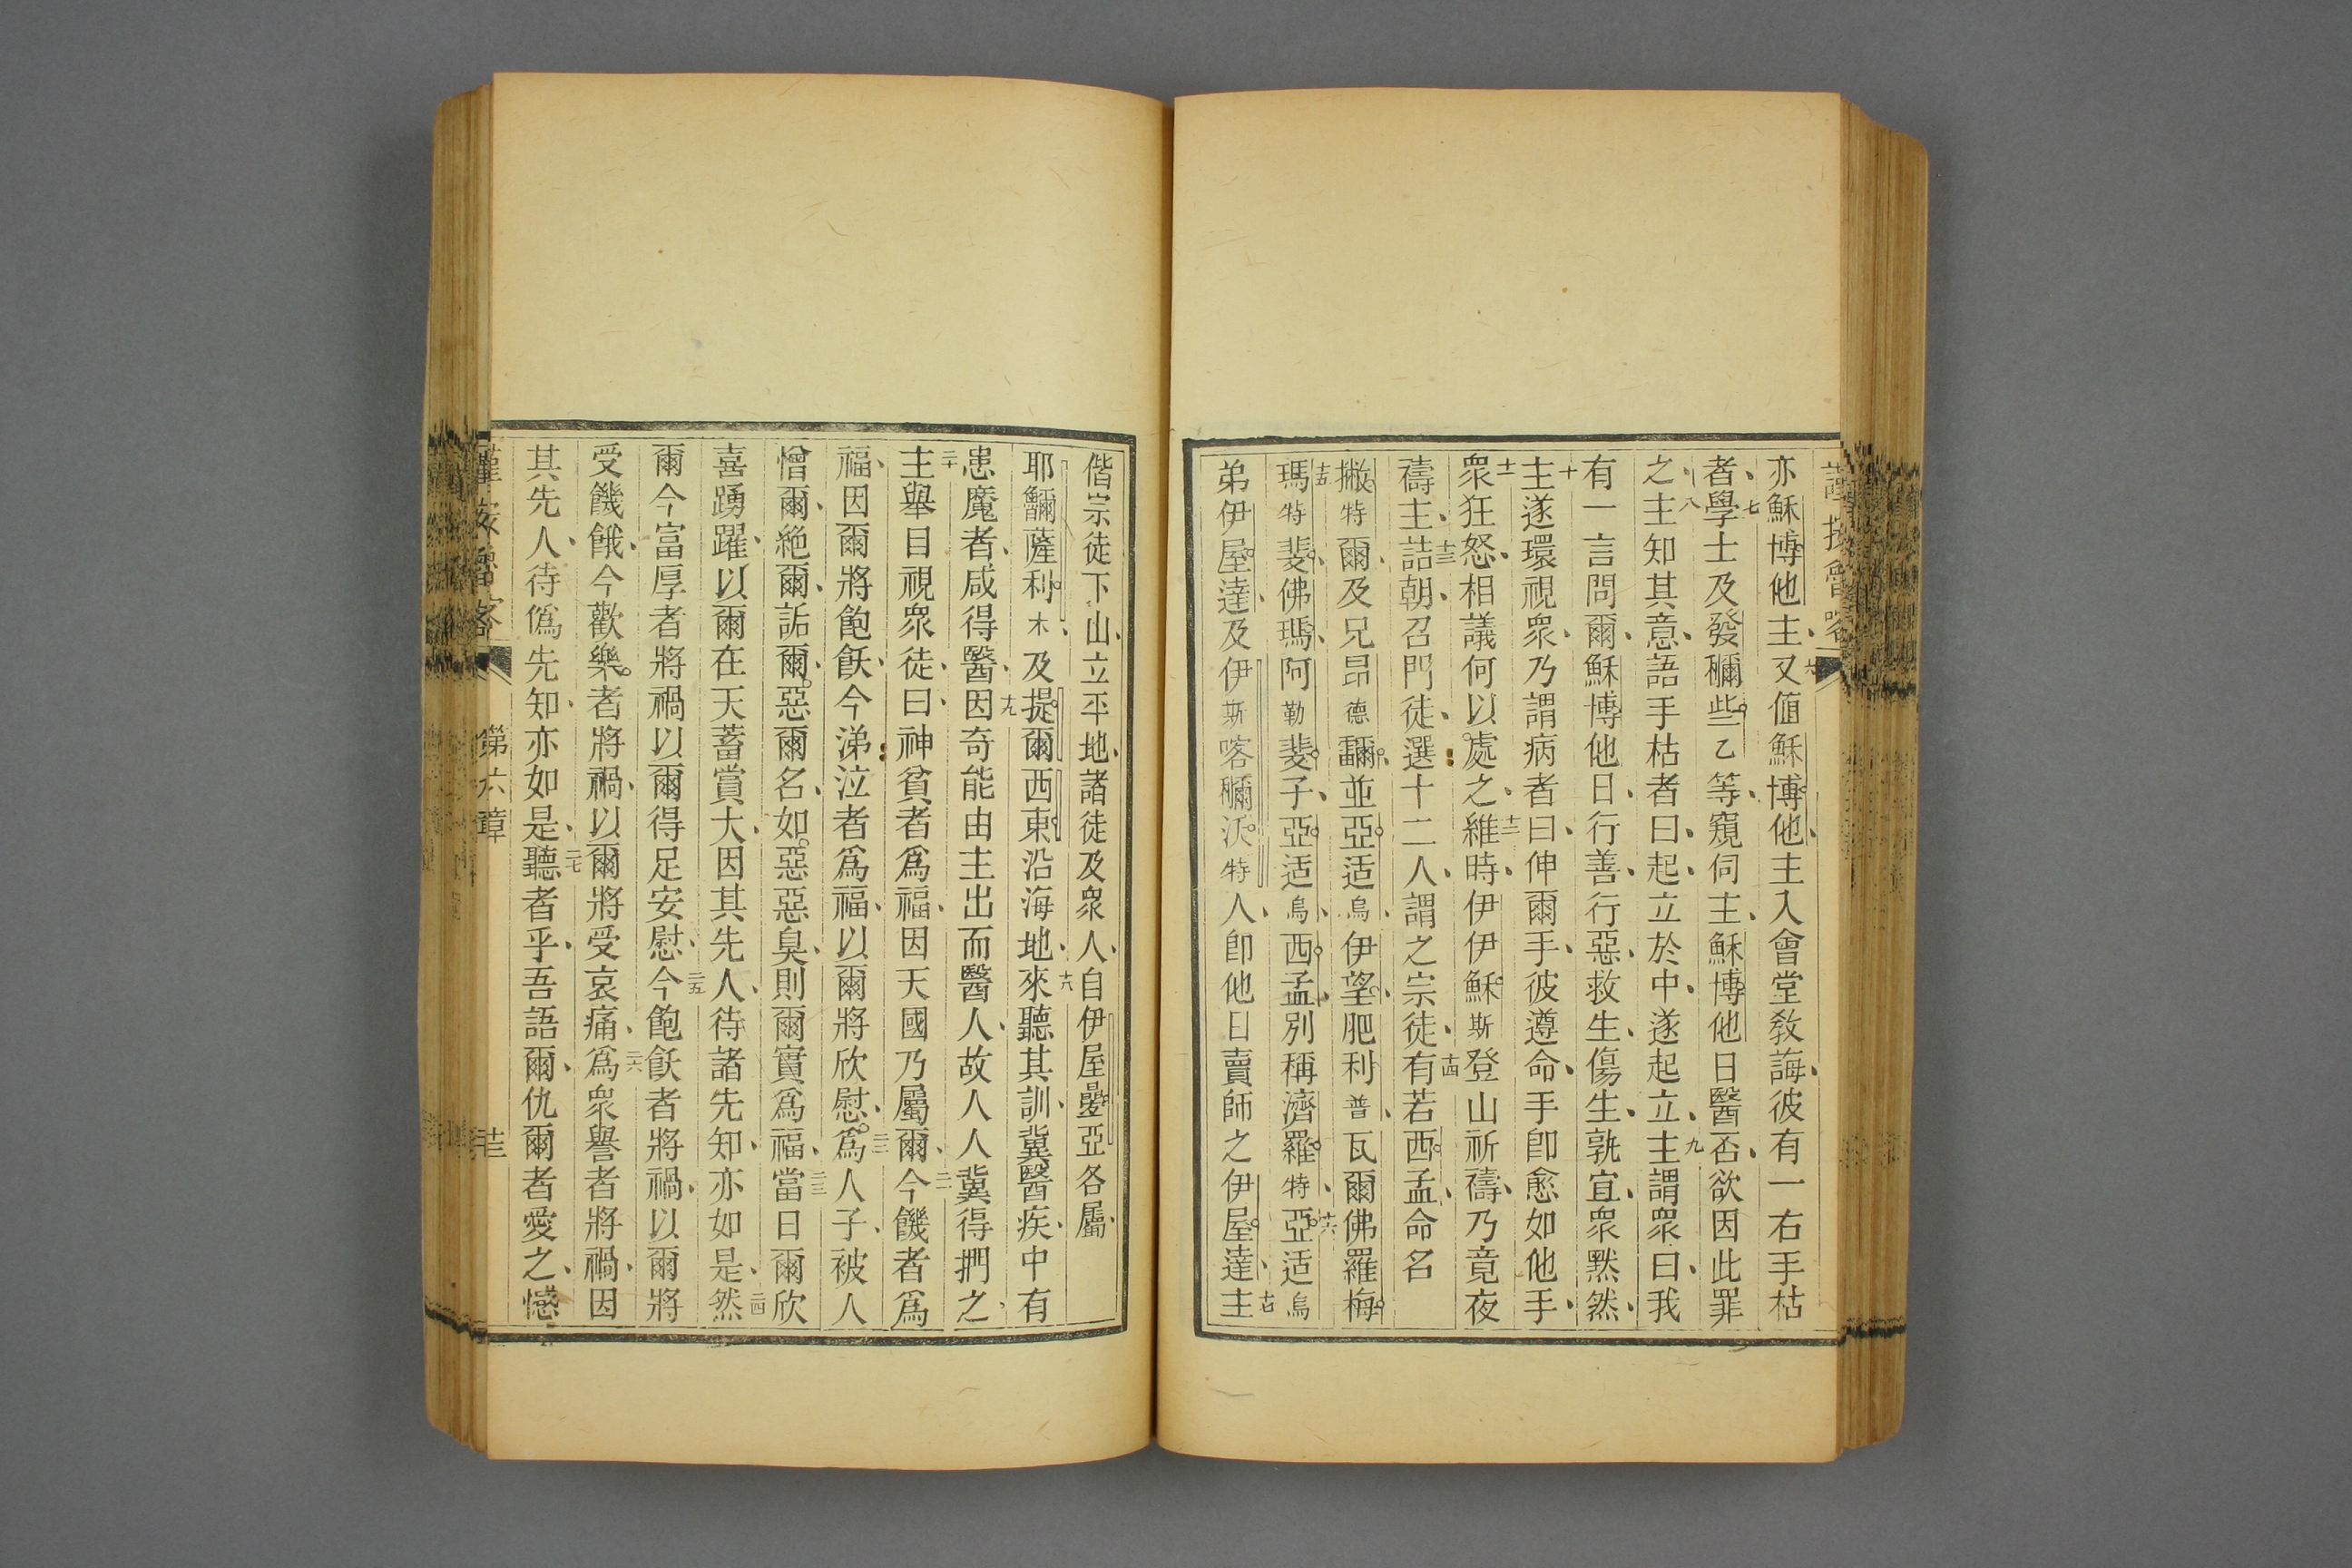 亦穌博他主、六又値穌博他、主入會堂敎誨、彼有一右手枯
者、七學士及發穪些乙等、窺伺主、穌博他日醫否、欲因此罪
之、八主知其意、語手枯者曰、起、立於中、遂起立、九主謂衆曰、我
有一言問爾、穌博他日、行善、行惡、救生、傷生、孰宜、衆默然、
十主遂環視衆、乃謂病者曰、伸爾手、彼遵命、手卽愈如他手、
十一衆狂怒、相議何以處之、十二維時、伊伊穌斯登山祈禱、乃竟夜
禱主、十三詰朝、召門徒、選十二人、謂之宗徒、十四有若西孟、命名
撇特爾、及兄昂德、並亞适烏、伊望、肥利普、瓦爾佛羅梅、
十五瑪特斐、佛瑪、阿勒斐子、亞适烏、西孟、別稱濟羅特、十六亞适烏
弟伊屋達、及伊斯喀穪沃特人、卽他日賣師之伊屋達、十七主
偕宗徒下山、立平地、諸徒及衆人、十八自伊屋亞各屬、
耶薩利木、及提爾西東沿海地、來聽其訓、冀醫疾、中有
患魔者、咸得醫、十九因奇能由主出而醫人、故人人冀得捫之、
二十主舉目視衆徒、曰、神貧者爲福、因天國乃屬爾、二一今饑者爲
福、因爾將飽飫、今涕泣者爲福、以爾將欣慰、二二爲人子、被人
憎爾、絶爾、詬爾、惡爾名、如惡惡臭、則爾實爲福、二三當日爾欣
喜踴躍、以爾在天蓄賞大、因其先人、待諸先知、亦如是、二四然
爾今富厚者將禍、以爾得足安慰、二五今飽飫者將禍、以爾將
受饑餓、今歡樂者將禍、以爾將受哀痛、二六爲衆譽者將禍、因
其先人、待僞先知、亦如是、二七聽者乎、吾語爾、仇爾者愛之、憾
第六章